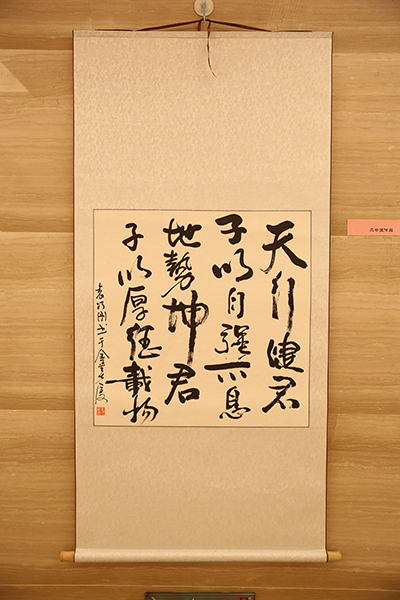 天行健君
子以自强不息
地勢坤君
子以厚德載物